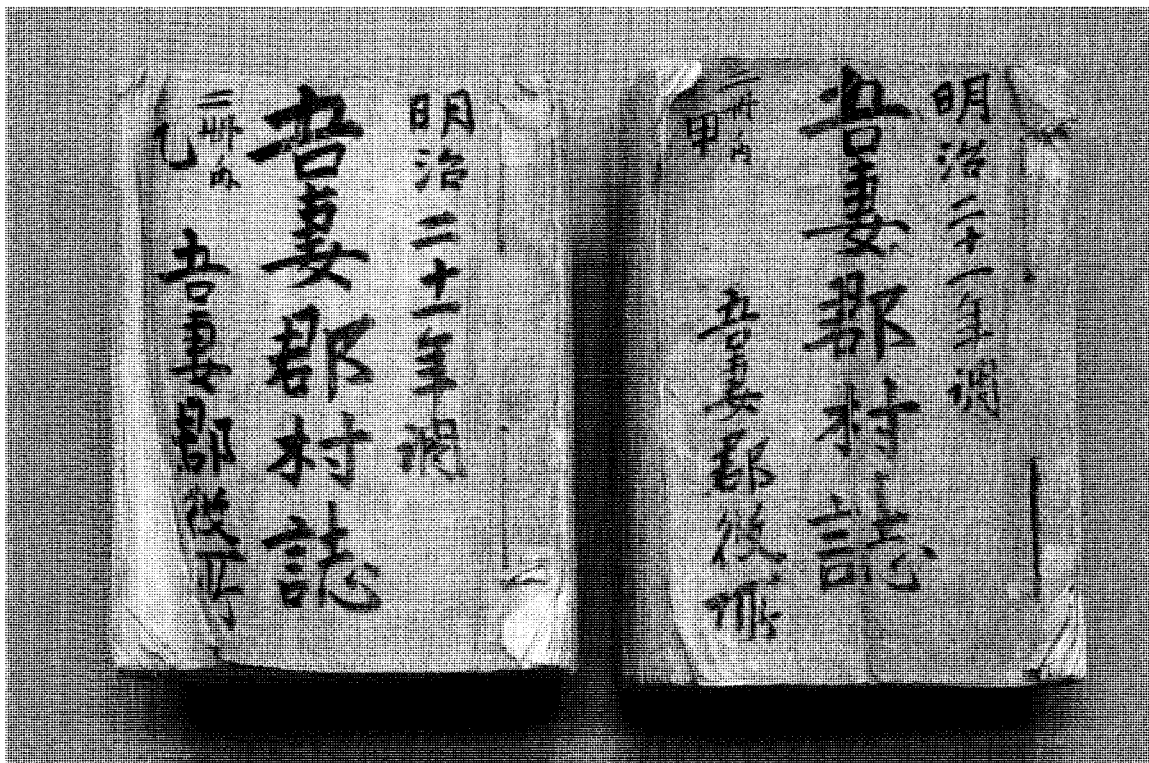 明治二十一年調
吾妻郡村誌
二冊内
甲
吾妻郡役所
明治二十一年調
吾妻郡村誌
二冊内
乙
吾妻郡役所